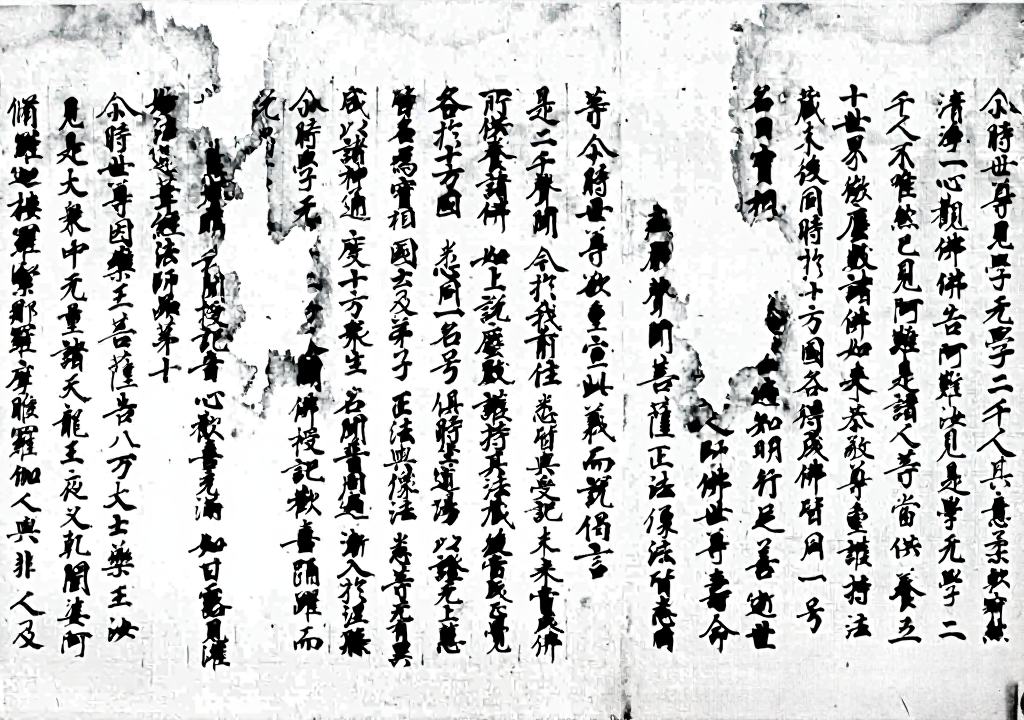 尒時世尊見學无學二千人其意柔軟寂然
清淨一心觀佛佛告阿難汝見是學无學二
千人不唯然已見阿難是諸人等當供養五
十世界微塵數諸佛如來恭敬尊重護持法
藏末後同時於十方國各得成佛皆同一号
名曰寶相 遍知明行足善逝世
人師佛世尊壽命
聲聞菩薩正法像法皆悉同
等尒時世尊欲重宣此義而說偈言
是二千聲聞 今於我前住 悉皆與受記 未來當成佛
所供養諸佛 如上說塵數 護持其法藏 後當成正覺
各於十方國 悉同一名号 俱時坐道場 以證无上慧
皆名為寶相 國土及弟子 正法與像法 悉等无有異
咸以諸神通 度十方衆生 名聞普周遍 漸入於涅槃
尒時學无 聞佛授記歡喜踊躍而
燈明 聞授記音 心歡喜充滿 如甘露見灌
妙法蓮華經法師品第十
尒時世尊因藥王菩薩告八万大士藥王汝
見是大衆中无量諸天龍王夜叉乹闥婆阿
脩羅迦樓羅緊那羅摩睺羅伽人與非人及